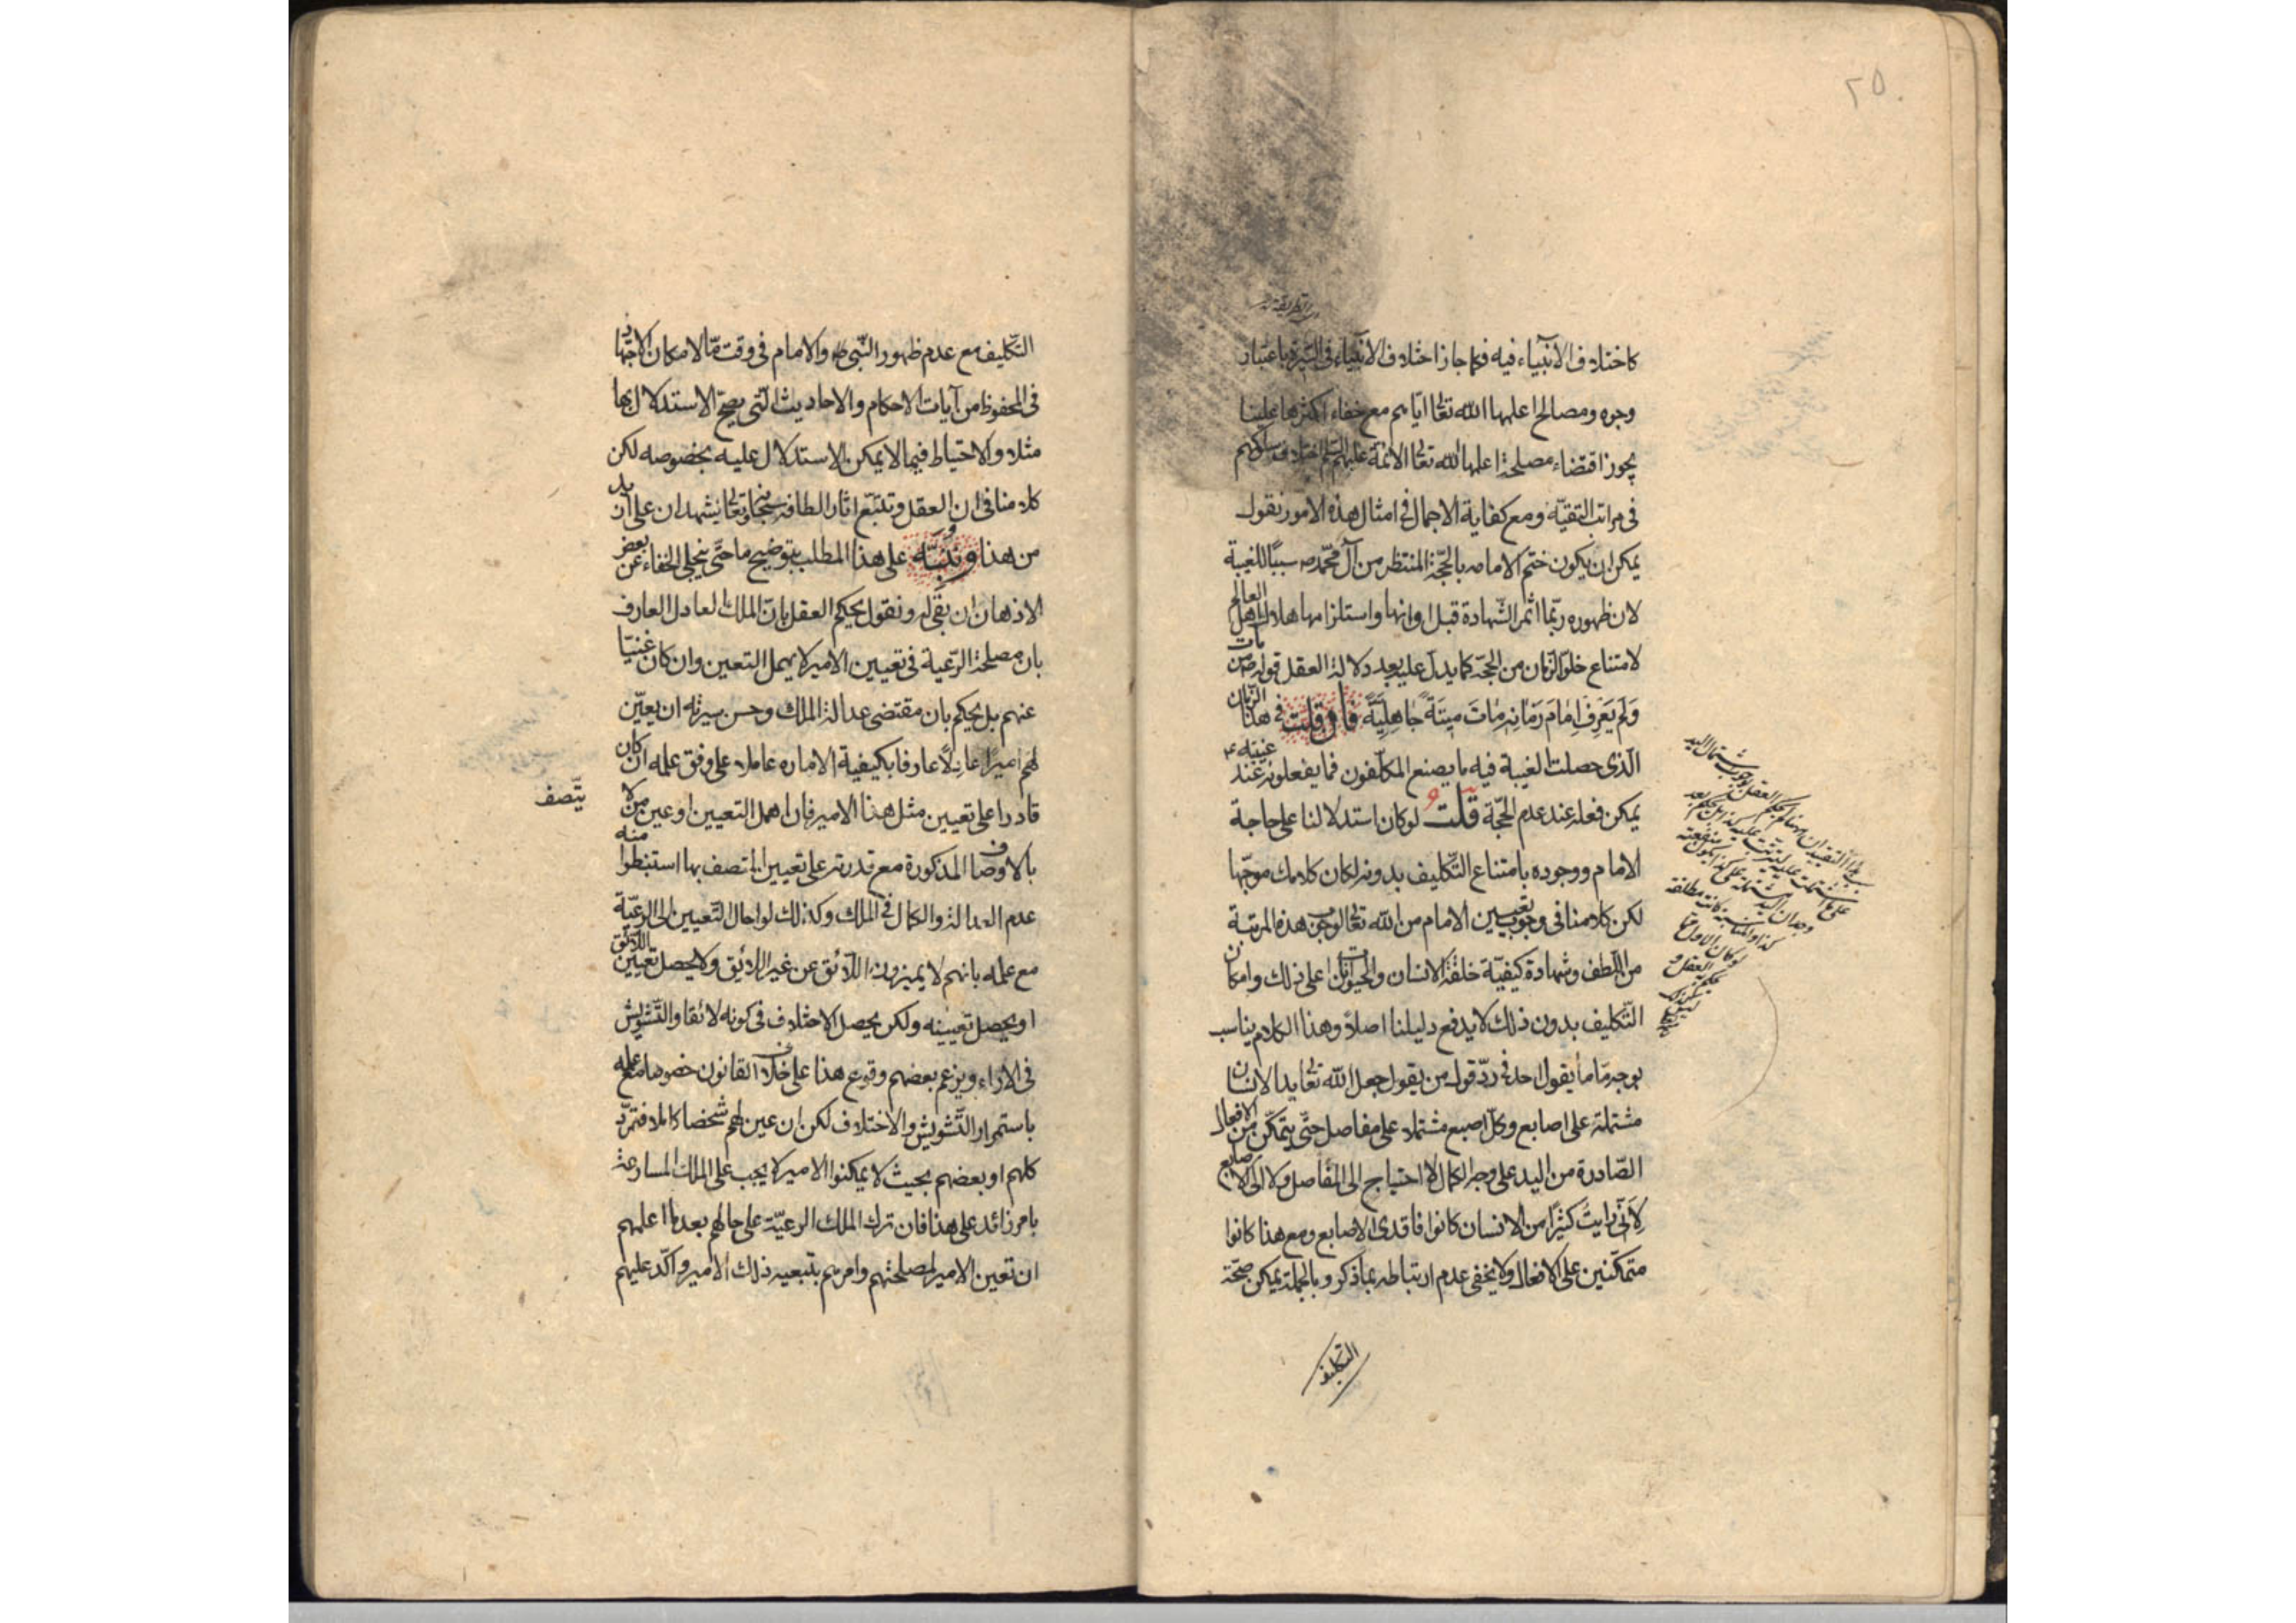 ٢٥
كاختلاف الأنبياء فيه فكما جاز اختلاف الأنبياء في السيرة باعتبار
وجوه ومصالح اعلمها الله تعالى اياهم مع خفاء اكثرها علينا
يجوز اقتضاء مصلحة اعلمها الله تعالى الائمة عليهم السلم اختلاف سلوكهم
في مراتب التقيّه ومع كفاية الاجمال في امثال هذه الامور نقول
يمكن ان يكون ختم الامامه بالحجّة المنتظر من آل محمّد ص سببًا للغيبة
لان ظهوره ربّما اثمر الشهادة قبل اوانها واستلزامها هلاك اهل العالم
لامتناع خلوّ الزمان من الحجّة كما يدلّ عليه بعد دلالة العقل قوله ص من مات
وَلَم يَعرِف اِمَامَ زَمَانِهِ مَاتَ مِيتَةً جَاهِلِيَّةً فان قلت في هذا الزمان
الّذى حصلت الغيبة فيه ما يصنع المكلّفون فما يفعلونه عند غيبته ع
يمكن فعله عند عدم الحجّة قلت لو كان استدلالنا على حاجة
الامام ووجوده بامتناع التّكليف بدونه لكان كلامك موجّها
لكن كلامنا في وجوب تعيين الامام من الله تعالى لوجوب هذه المرتبة
من اللّطف وشهادة كيفيّة خلقة الانسان والحيوانات على ذلك وامكان
التّكليف بدون ذلك لا يدفع دليلنا اصلاً وهذا الكلام يناسب
بوجه مّا ما يقول احد في ردّ قول من يقول جعل الله تعالى يد الانسان
مشتملة على اصابع وكلّ اصبع مشتملا على مفاصل حتّى يتمكّن من الافعال
الصّادرة من اليد على وجه الكمال لا احتياج الى المفاصل ولا الى الاصابع
لِأنّي رايتُ كثيرًا من الانسان كانوا فاقدى الاصابع ومع هذا كانوا
متمكّنين على الافعال ولا يخفى عدم ارتباطه بما ذكر وبالجملة يمكن صحّة
التكليف
التّكليف مع عدم ظهور النّبي ص والامام في وقت مّا لامكان الاجتهاد
في المحفوظ من آيات الاحكام والاحاديث الّتى يصحّ الاستدلال بها
مثلا والاحتياط فيما لا يمكن الاستدلال عليه بخصوصه لكن
كلامنا في ان العقل وتتبّع اثار الطافه سبحانه وتعالى يشهدان على ازيد
من هذا وننبّه على هذا المطلب بتوضيح ما حتّى ينجلى الخفاء عن بعض
الاذهان ان بقى له ونقول يحكم العقل بانّ الملك العادل العارف
بان مصلحة الرّعية في تعيين الامير لا يهمل التعين وان كان غنيّا
عنهم بل يحكم بان مقتضى عدالة الملك وحسن سيرته ان يعيّن
لهم اميرًا عادلاً عارفا بكيفية الاماره عاملا على وفق علمه ان كان
قادرا على تعيين مثل هذا الامير فان اهمل التعيين او عين من لا
يتّصف
بالاوصاف المذكورة مع قدرته على تعيين ما اتصف بها استنبطوا منه
عدم العدالة والكمال في الملك وكذلك لو احال التّعيين الى الرعيّة
مع علمه بانهم لا يميزون اللّائق عن غير اللائق ولا يحصل تعيين اللائق
او يحصل تعيينه ولكن يحصل الاختلاف في كونه لائقا والتّشويش
في الاراء ويزعم بعضهم وقوع هذا على خلاف القانون خصوصا مع علمه
باستمرار التّشويش والاختلاف لكن ان عين لهم شخصا كاملا فتمرّد
كلهم او بعضهم بحيث لا يمكنوا الامير لا يجب على الملك المسارعة
بامر زائد على هذا فان ترك الملك الرعيّة على حالهم بعد ما اعلمهم
ان تعين الامير لمصلحتهم وامرهم بتبعيه ذلك الامير واكّد عليهم